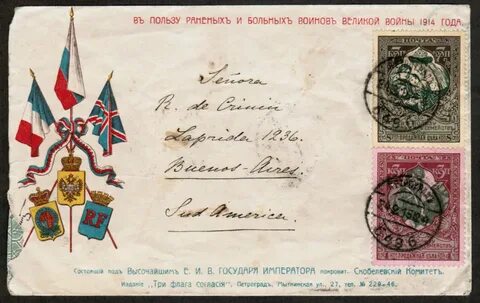 ВЪ ПОЛЬЗУ РАНЕНЫХЪ И БОЛЬНЫХЪ ВОИНОВЪ ВЕЛИКОЙ ВОЙНЫ 1914 ГОДА.
ПОЧТА
Señora
R. de Crinin
Laprida 1236.
Buenos-Aires.
Sud America.
RF
Состоящій подъ Высочайшимъ Е. И. В. ГОСУДАРЯ ИМПЕРАТОРА покровит. Скобелевскій Комитетъ.
Изданіе „Три флага согласія". Петроградъ, Мытнинская ул., 27, тел. № 229-46.